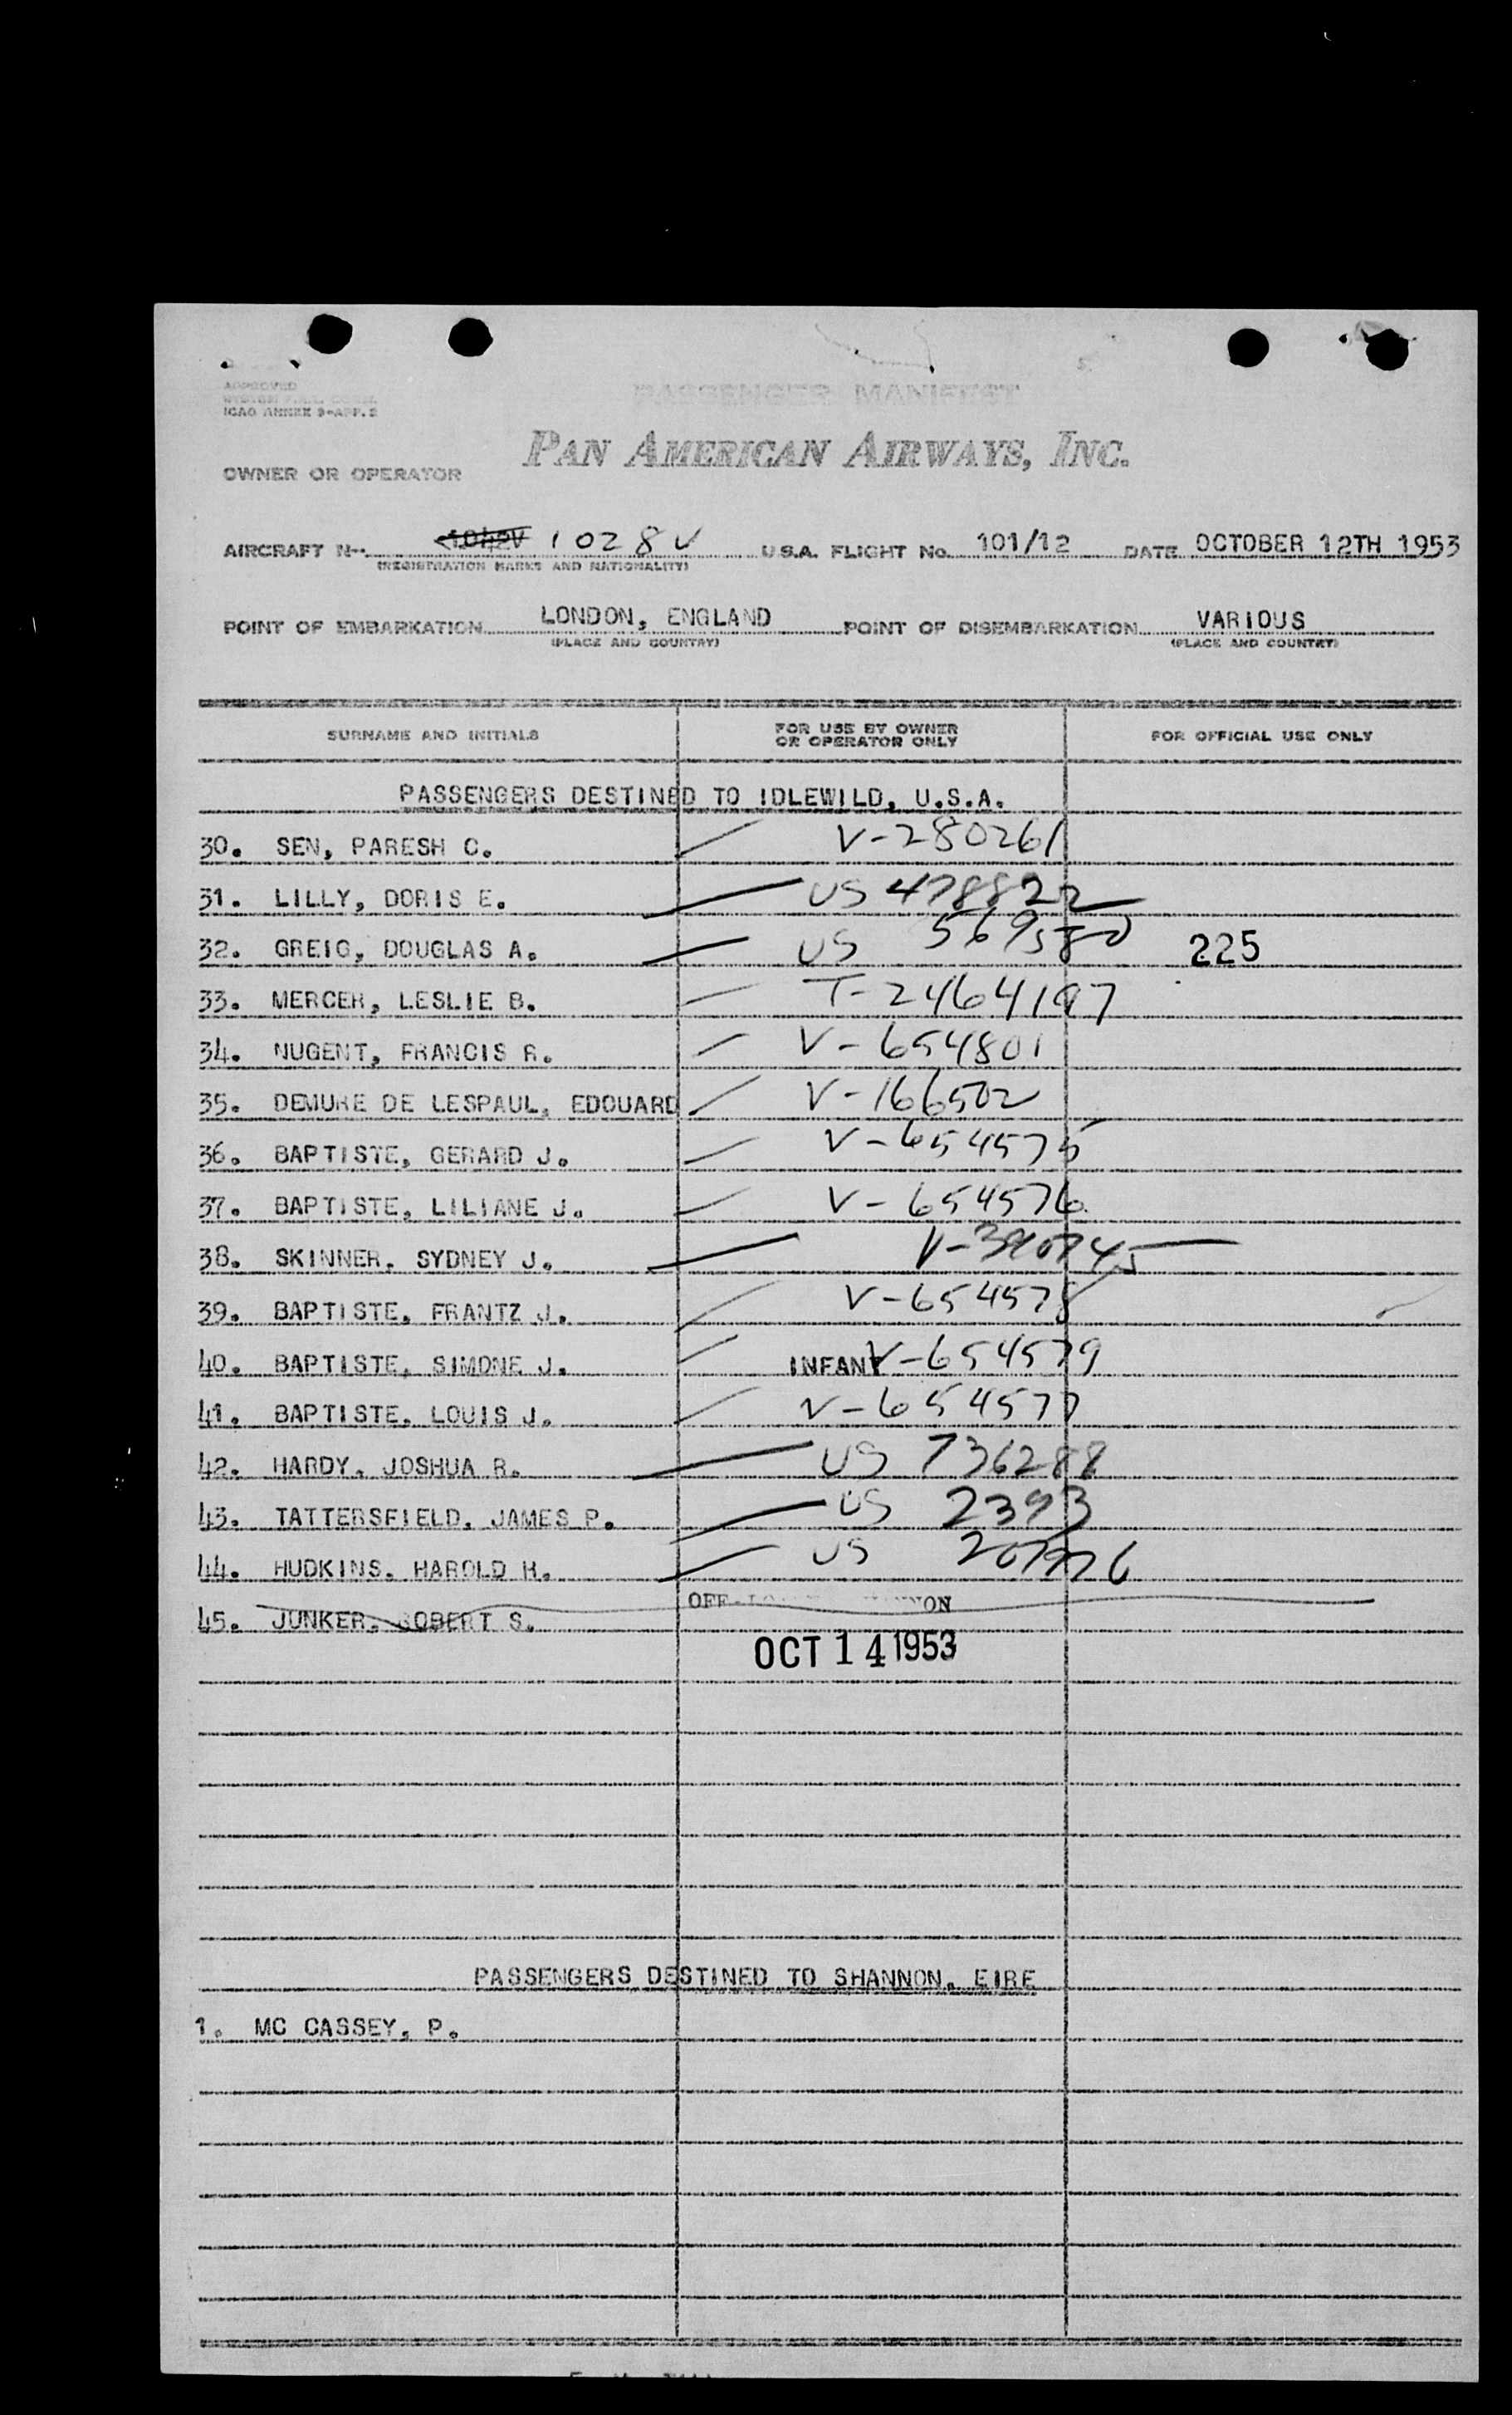 APPROVED
ICAO ANNEX 9-APP. 2
PASSENGER MANIFEST
OWNER OR OPERATOR PAN AMERICAN AIRWAYS, INC.
AIRCRAFT N- 1028V U.S.A. FLIGHT No. 101/12 DATE OCTOBER 12TH 1953
(REGISTRATION MARKS AND NATIONALITY)
POINT OF EMBARKATION LONDON, ENGLAND POINT OF DISEMBARKATION VARIOUS
(PLACE AND COUNTRY) (PLACE AND COUNTRY)
SURNAME AND INITIALS FOR USE BY OWNER OR OPERATOR ONLY FOR OFFICIAL USE ONLY
PASSENGERS DESTINED TO IDLEWILD, U.S.A.
30. SEN, PARESH C. V-280261
31. LILLY, DORIS E. US 478822
32. GREIG, DOUGLAS A. US 569580 225
33. MERCER, LESLIE B. T-2464197
34. NUGENT, FRANCIS R. V-654801
35. DEMURE DE LESPAUL, EDOUARD V-166502
36. BAPTISTE, GERARD J. V-654575
37. BAPTISTE, LILIANE J. V-654576
38. SKINNER, SYDNEY J.
39. BAPTISTE, FRANTZ J. V-654578
40. BAPTISTE, SIMONE J. INFANT V-654579
41. BAPTISTE, LOUIS J. V-654577
42. HARDY, JOSHUA R. US 736288
43. TATTERSFIELD, JAMES P. US 2393
44. HUDKINS, HAROLD H. US
45. JUNKER, ROBERT S.
OCT 14 1953
PASSENGERS DESTINED TO SHANNON, EIRE
1. MC CASSEY, P.